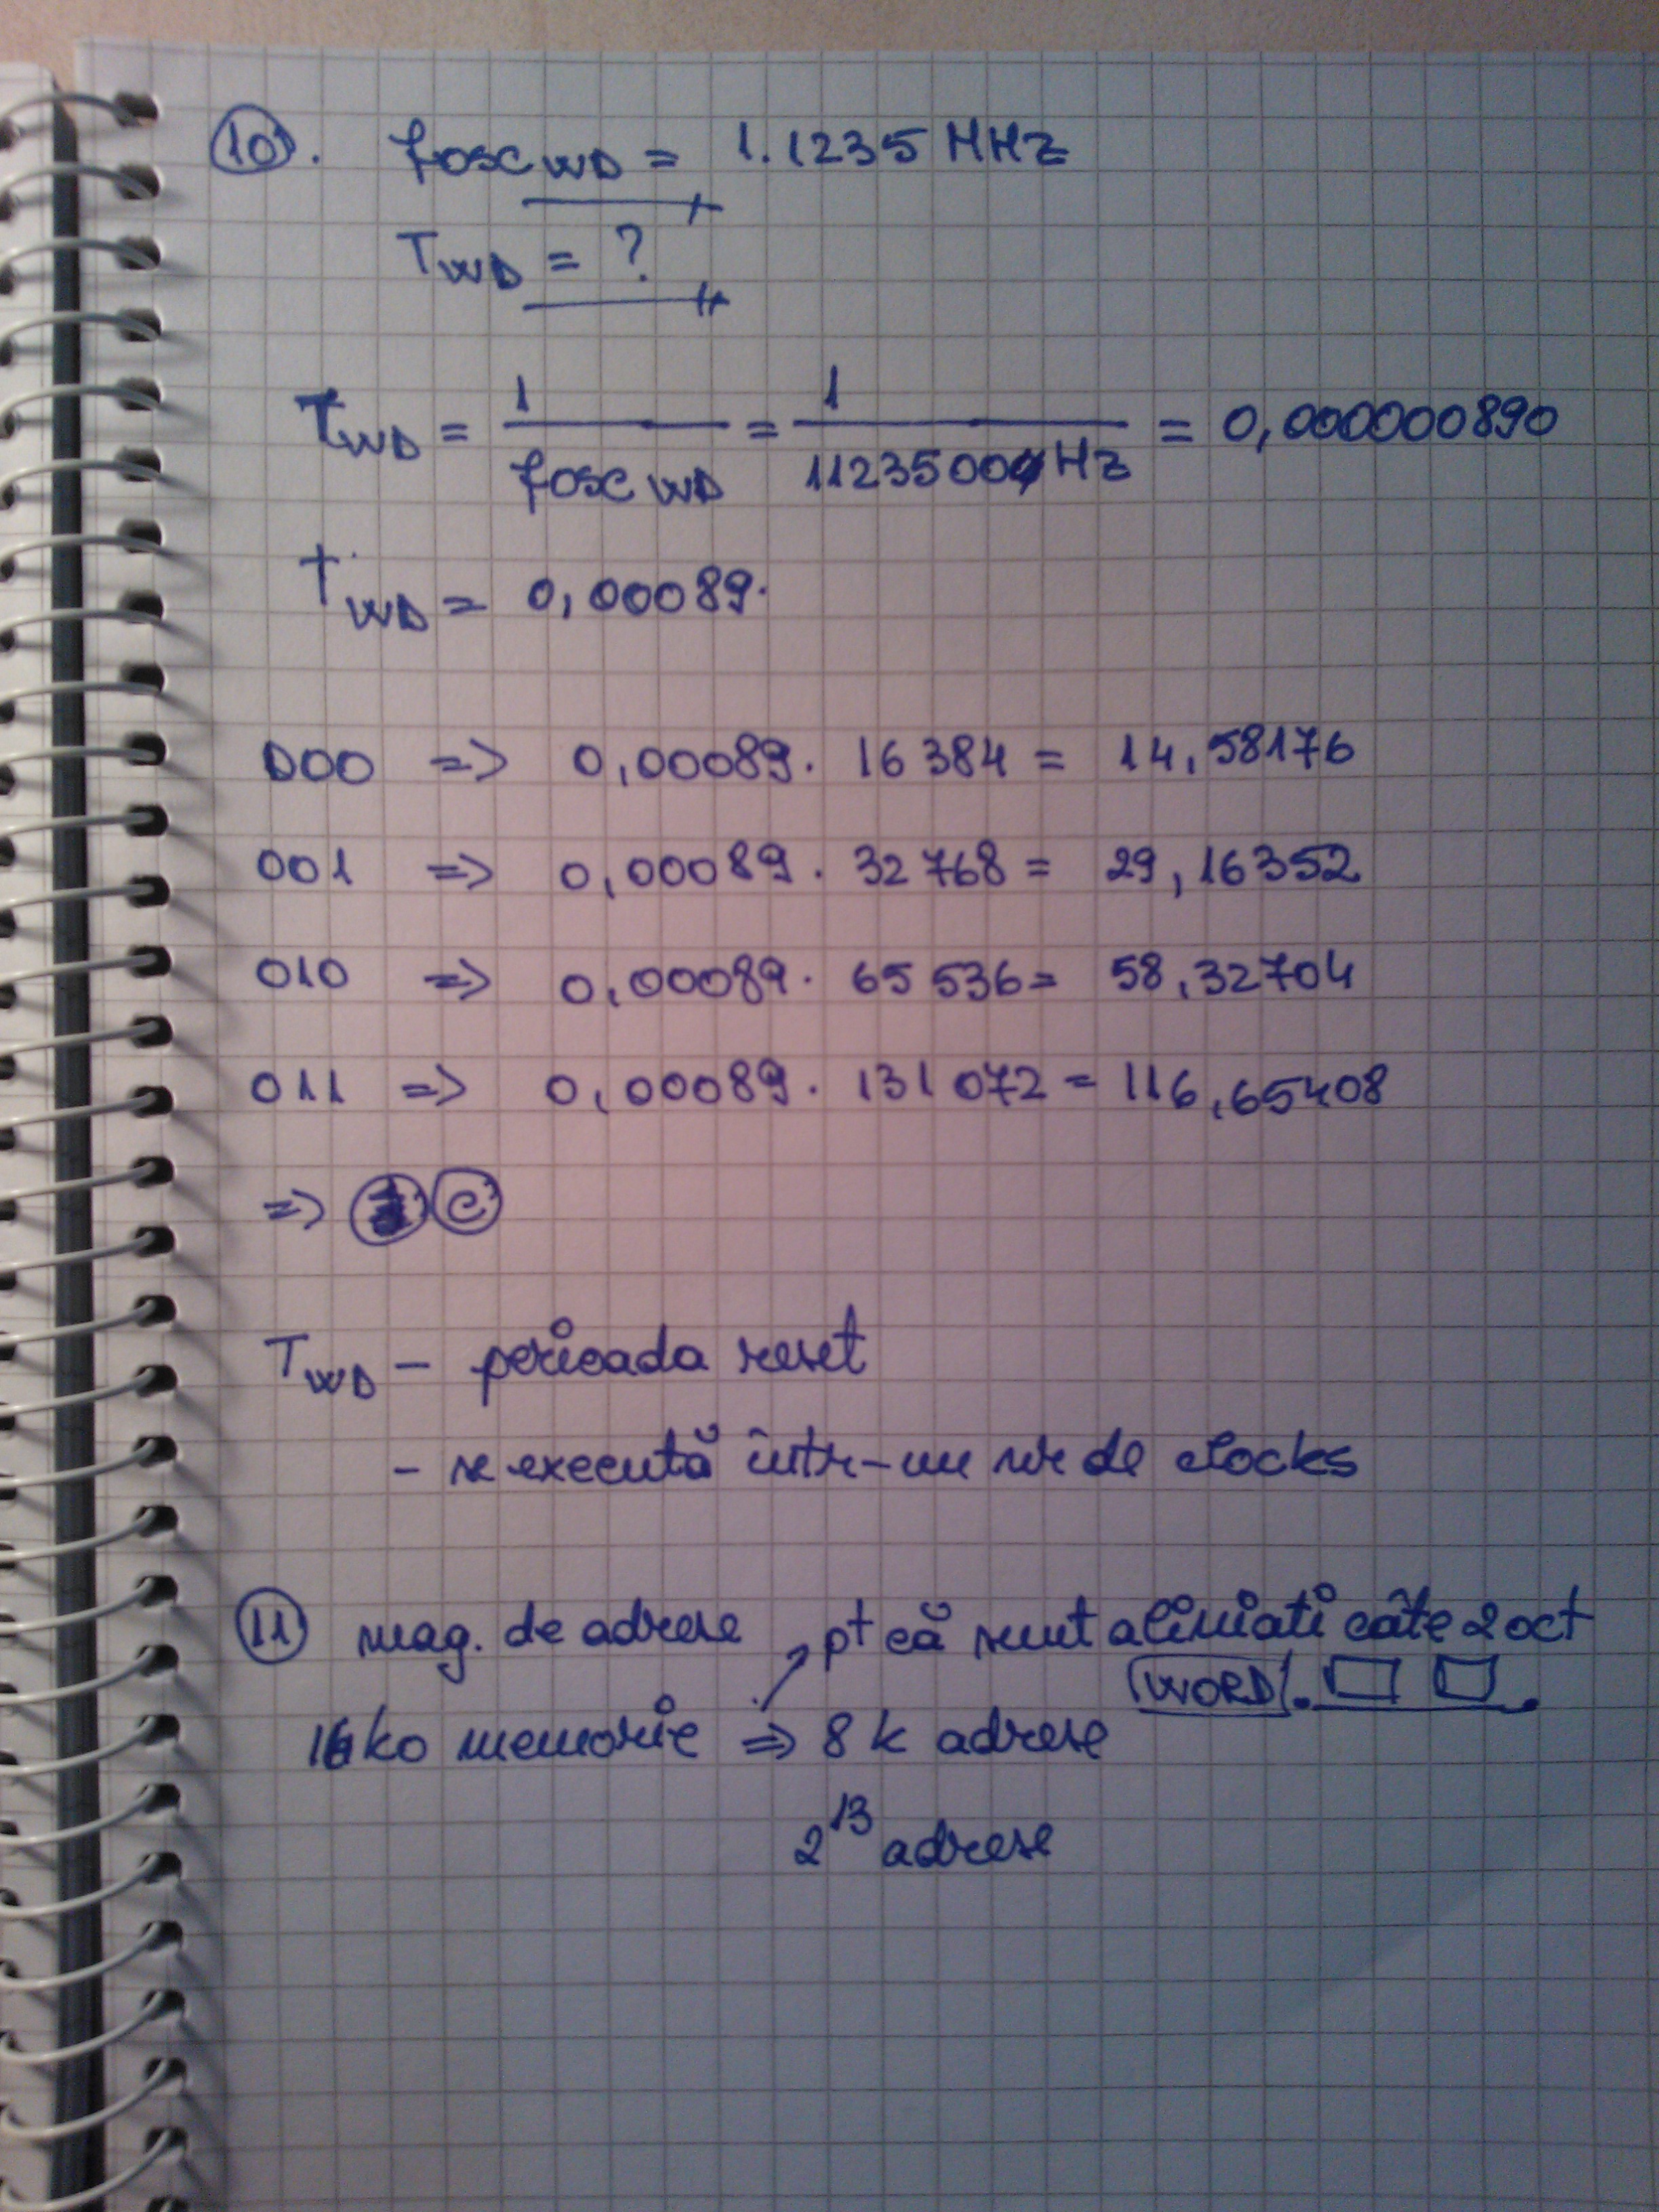 10). fosc WD = 1.1235 MHZ
TWD = ?
TWD = 1 / fosc WD = 1 / 1123500 HZ = 0,000000890
TWD = 0,00089.
000 => 0,00089. 16 384 = 14,58176
001 => 0,00089. 32 768 = 29,16352
010 => 0,00089. 65 536 = 58,32704
011 => 0,00089. 131 072 = 116,65408
=> c)
TWD - perioada reset
- se execută într-un nr de clocks
11 mag. de adrese pt că sunt aliniati câte 2 oct
WORD
16ko memorie => 8 k adrese
2^13 adrese